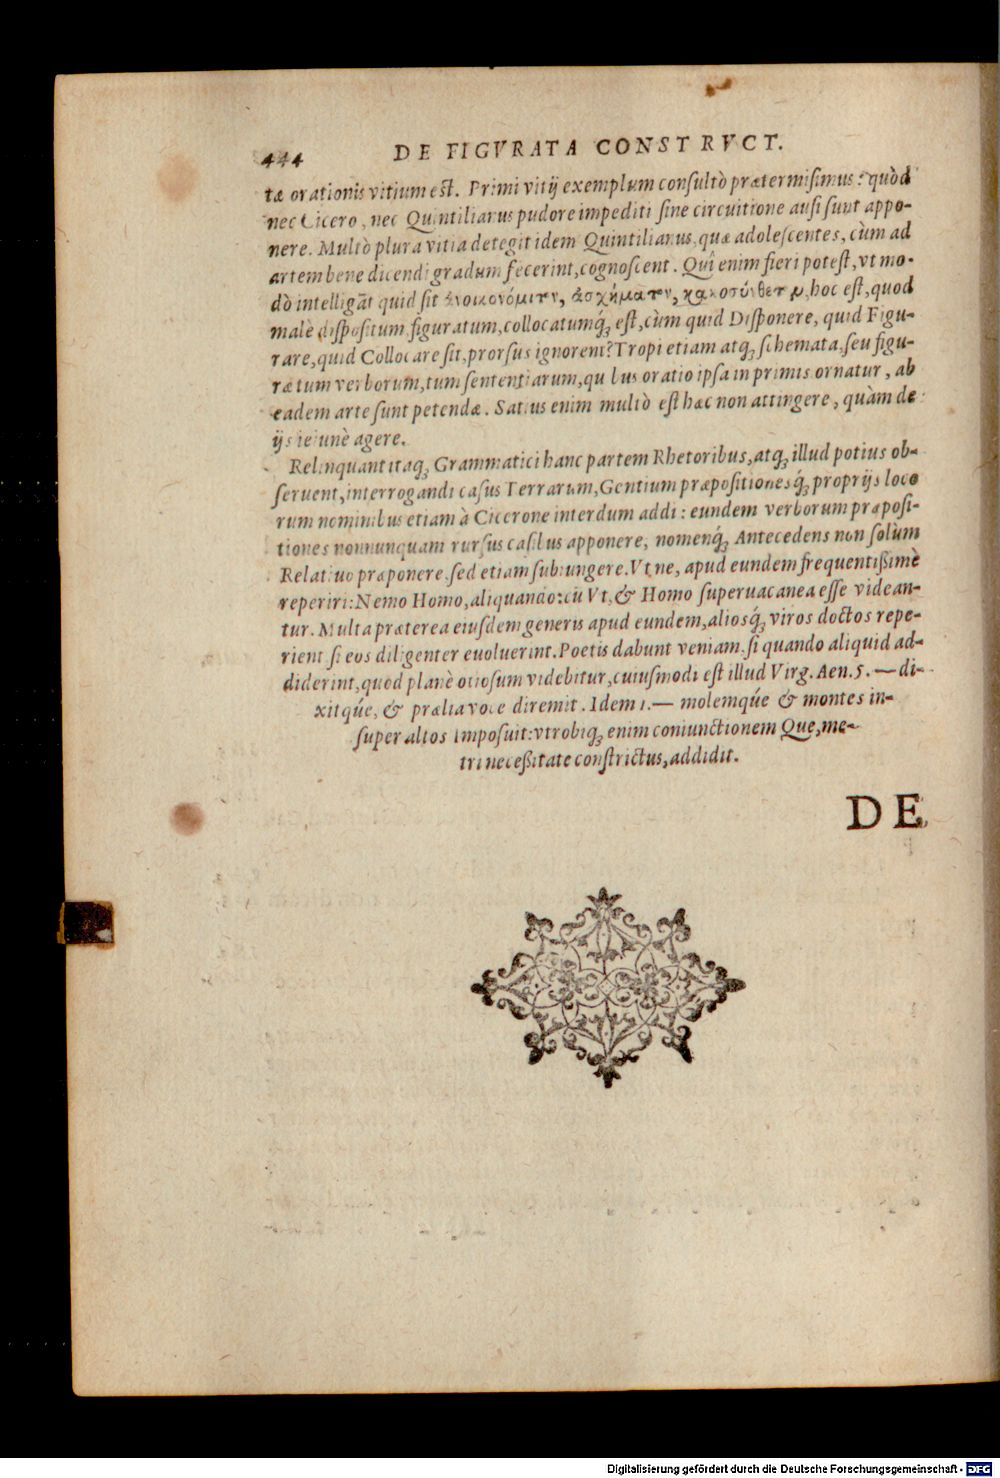 444 DE FIGVRATA CONSTRVCT.
tæ orationis vitium est. Primi vitij exemplum consultò prætermisimus: quòd
nec Cicero, nec Quintilianus pudore impediti sine circuitione ausi sunt appo-
nere. Multò plura vitia detegit idem Quintilianus, quæ adolescentes, cùm ad
artem bene dicendi gradum fecerint, cognoscent. Quî enim fieri potest, vt mo-
dò intelligāt quid sit ἀνοικονόμιτον, ἀσχήματον, κακοσύνθετον, hoc est, quod
malè dispositum, figuratum, collocatumq́ꝫ est, cùm quid Disponere, quid Figu-
rare, quid Collocare sit, prorsus ignorent? Tropi etiam atqꝫ schemata, seu figu-
ræ tum verborum, tum sententiarum, quibus oratio ipsa in primis ornatur, ab
eadem arte sunt petendæ. Satius enim multò est hæc non attingere, quàm de
ijs ieiunè agere.
Relinquant itaqꝫ Grammatici hanc partem Rhetoribus, atqꝫ illud potius ob-
seruent, interrogandi casus Terrarum, Gentium præpositionesq́ꝫ proprijs loco
rum nominibus etiam à Cicerone interdum addi: eundem verborum præposi-
tiones nonnunquam rursus casibus apponere, nomenq́ꝫ Antecedens non solùm
Relatiuo præponere, sed etiam subiungere. Vt ne, apud eundem frequentißimè
reperiri: Nemo Homo, aliquando: cū Vt, & Homo superuacanea esse videan-
tur. Multa præterea eiusdem generis apud eundem, aliosq́ꝫ viros doctos repe-
rient si eos diligenter euoluerint. Poetis dabunt veniam, si quando aliquid ad-
diderint, quod planè otiosum videbitur, cuiusmodi est illud Virg. Aen. 5. — di-
xitq́ue, & prælia voce diremit. Idem 1. — molemq́ue & montes in-
super altos Imposuit: vtrobiqꝫ enim coniunctionem Que, me-
tri neceßitate constrictus, addidit.
DE
Digitalisierung gefördert durch die Deutsche Forschungsgemeinschaft - DFG